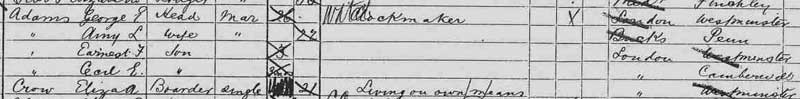 Adams George E Head Mar 26 Clockmaker X London Westminster
" Amy L Wife " 22 Bucks Penn
" Earnest F Son 3 London Westminster
" Cecil E. " " Camberwell
Crow Eliza A Boarder single 21 Living on own means " Westminster